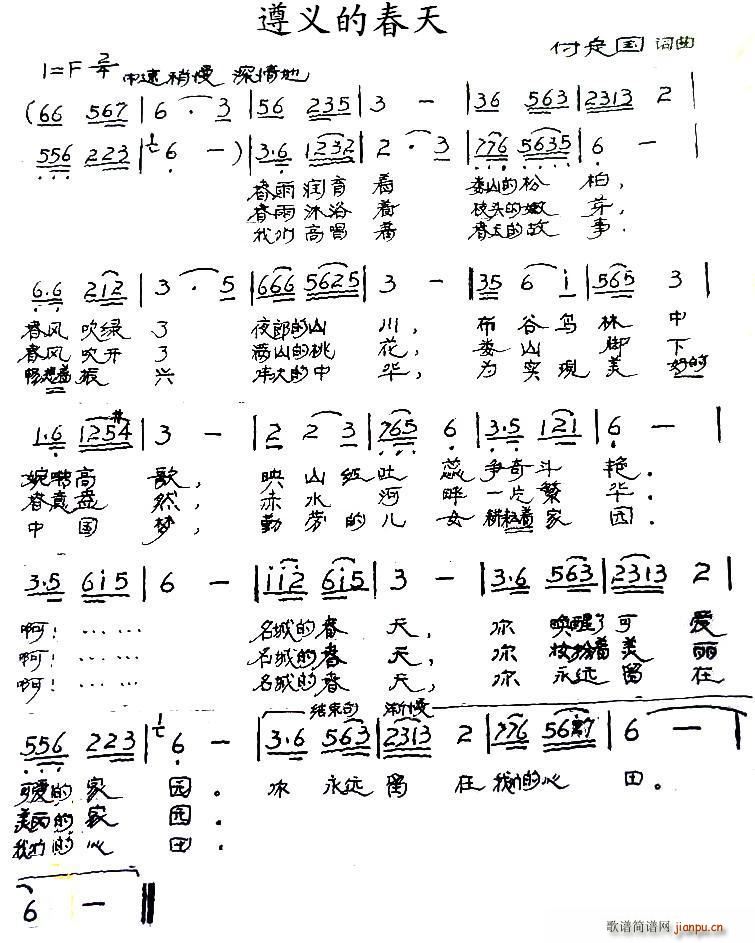 遵义的春天
付定国 词曲
1=F 2/4 中速稍慢 深情地
(66 567 | 6 · 3 | 56 235 | 3 - | 36 563 | 2313 2 |
556 223 | 6 - ) | 3·6 1232 | 2 · 3 | 776 5635 | 6 - |
春雨润育着 娄山的松柏,
春雨沐浴着 枝头的嫩芽,
我们高唱着 春天的故事.
6·6 212 | 3 · 5 | 666 5625 | 3 - | 35 6 i | 565 3 |
春风吹绿了 夜郎的山川, 布谷鸟林中
春风吹开了 满山的桃花, 娄山脚下
畅想着振兴 伟大的中华, 为实现美好的
1·6 1254 | 3 - | 2 2 3 | 765 6 | 3·5 121 | 6 - |
婉转高歌, 映山红吐蕊争奇斗艳.
春意盎然, 赤水河畔一片繁华.
中国梦, 勤劳的儿女耕耘着家园.
3·5 6i5 | 6 - | ii2 6i5 | 3 - | 3·6 563 | 2313 2 |
啊! …… 名城的春天, 你唤醒了可爱
啊! …… 名城的春天, 你装扮着美丽
啊! …… 名城的春天, 你永远留在
结束的 渐慢
556 223 | 6 - | 3·6 563 | 2313 2 | 776 5667 | 6 - |
可爱的家园. 你永远留在我们的心田.
美丽的家园.
我们的心田.
6 - ‖
歌谱简谱网
jianpu.cn